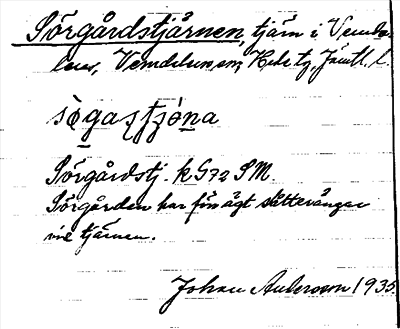 Sörgårdstjärnen, tjärn i Vemda-
lens, Vemdalens sn, Hede tg, Jämtl. l.
sò̱gaʂtjó̱na
Sörgårdstj. k G72 SM.
Sörgården har förr ägt slåtterängar
vid tjärnen.
Johan Anderson 1935